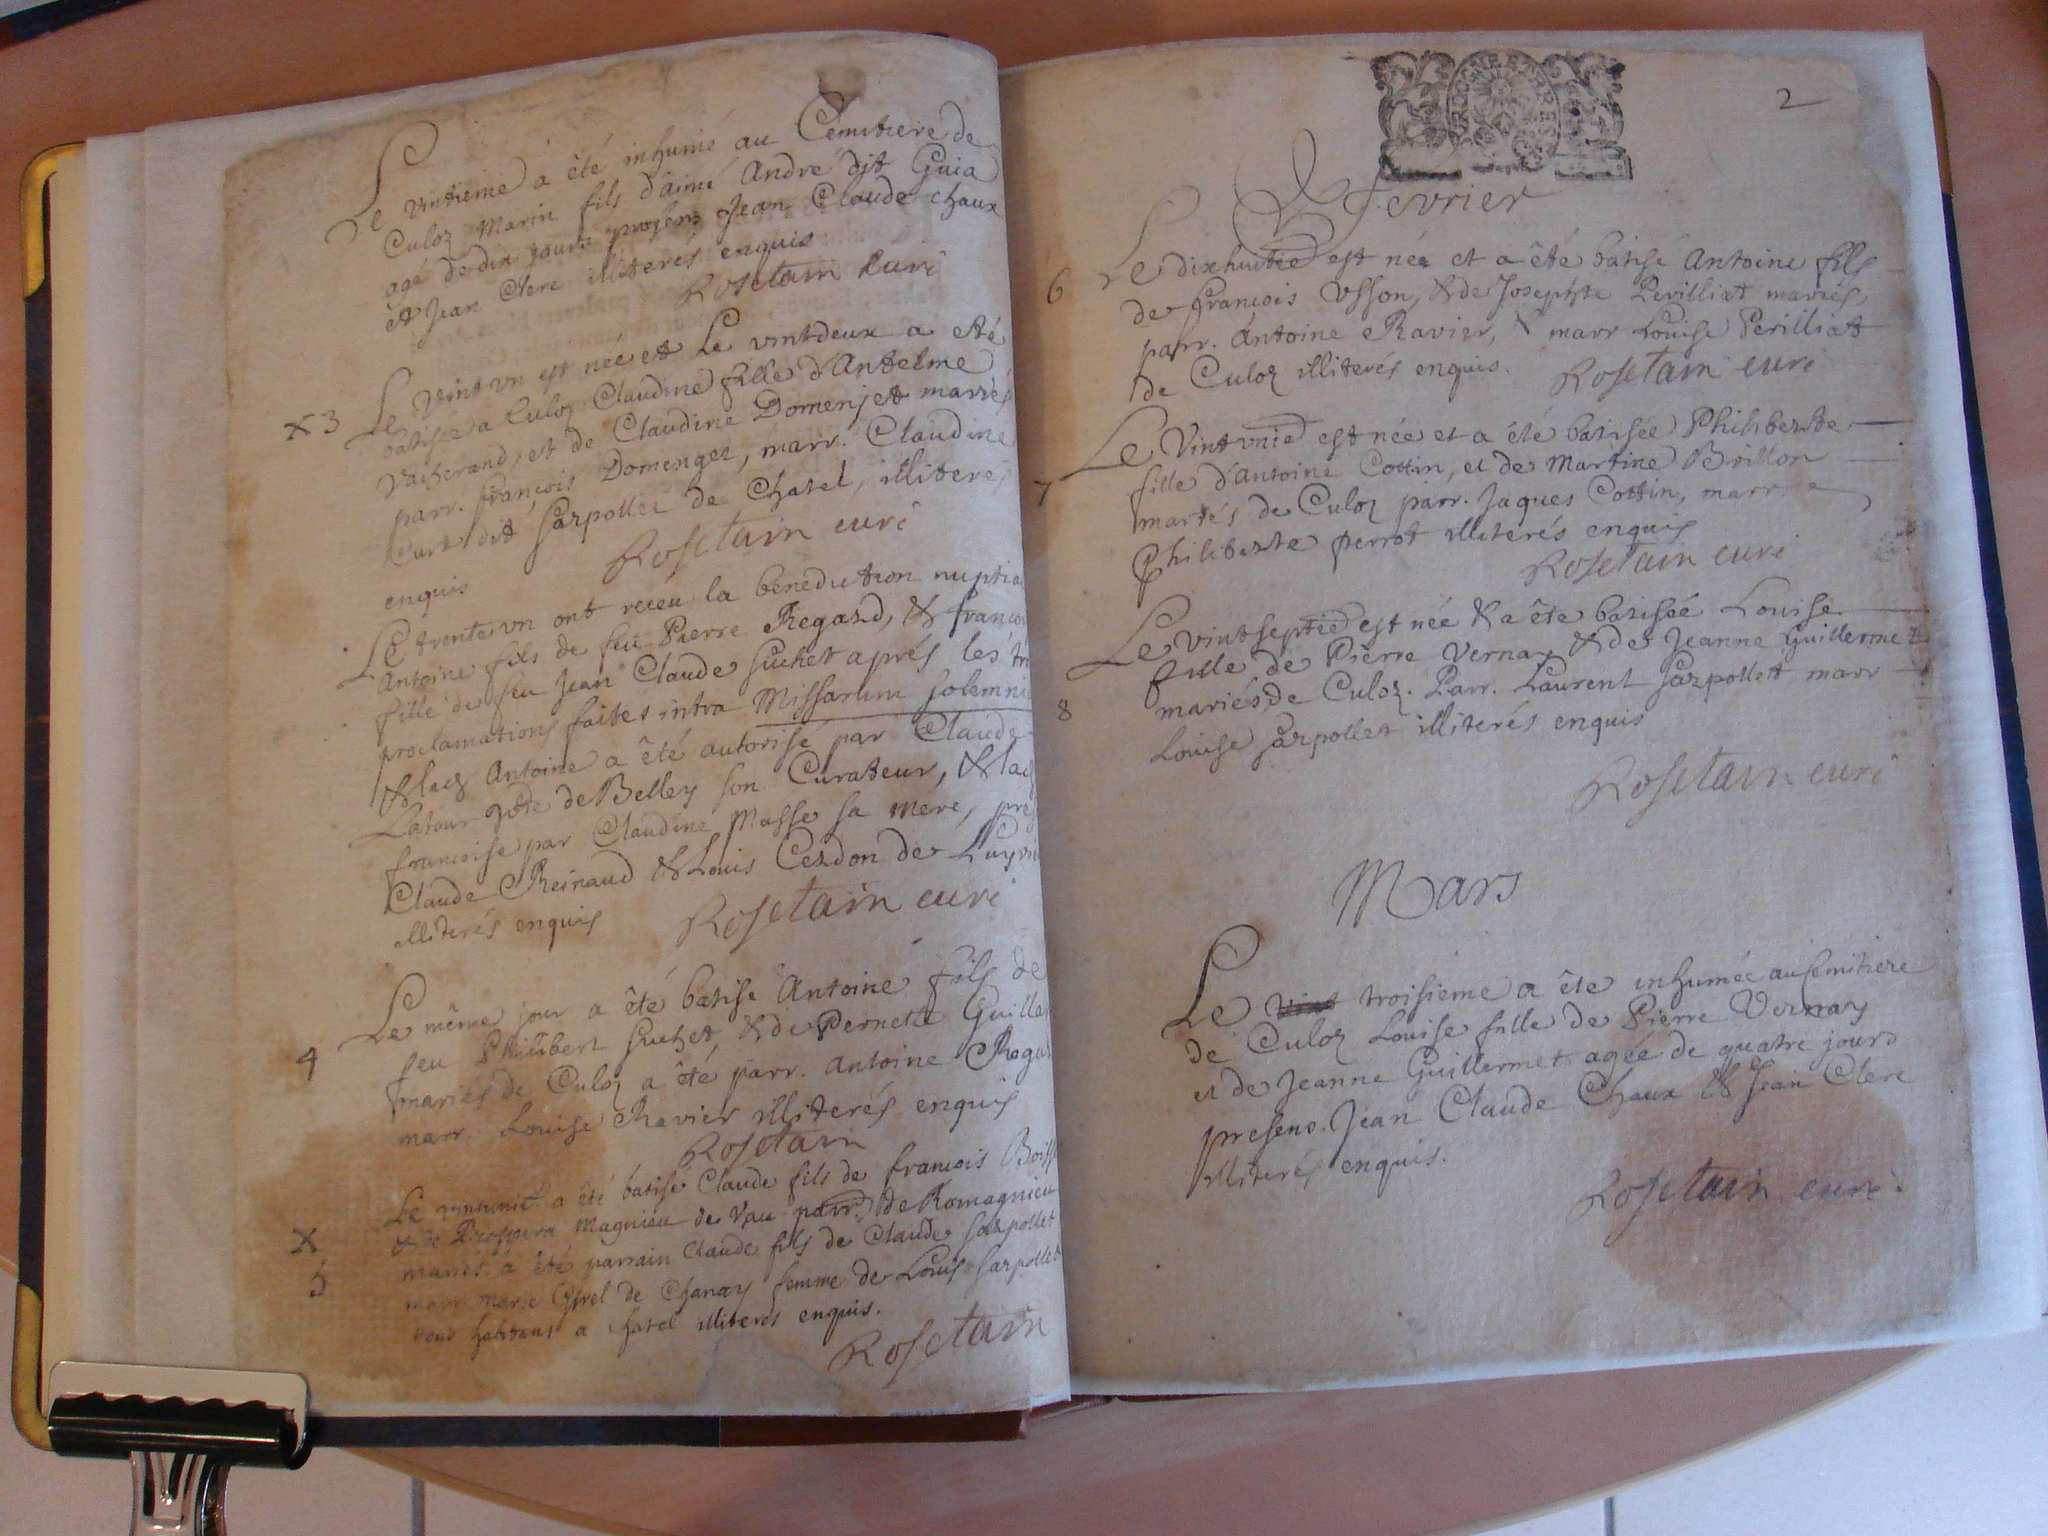 Le vintieme a êté inhumé au Cemitiere de
Culoz Marin fils d'aimé André dit Guia
agé de dix jours presens Jean Claude chaux
et Jean Clerc illiterés enquis
Rosetain curé
X 3
Le vint un est née et Le vintdeux a eté
batisée a Culoz Claudine fille d'Antelme
Vacherand, et de Claudine Domenjet mariés
parr. françois Domenget, marr. Claudine
Curt dit Sarpollet de Chatel, illiterés
enquis
Rosetain curé
Le trente un ont receu la benediction nuptia
Antoine fils de feu Pierre Regard, & francoi
fille de feu Jean Claude Suchet aprés les tr
proclamations faites intra Missarum solemni
& led Antoine a êté autorisé par Claude
Latour de Belley son Curateur, & lad
francoise par Claudine Masse sa mere, pres
Claude Reinaud & Louis Cerdon de
illiterés enquis
Rosetain curé
4
Le même jour a êté batisé Antoine fils de
feu Philibert Suchet, & de Pernete Guille
mariés de Culoz a êté parr. Antoine Rega
marr. Louise Ravier illiterés enquis
Rosetain
X
5
Le a êté batisé Claude fils de francois
& de Prospera Magnieu de Vau parr. de Romagnieu
mariés a êté parrain Claude fils de Claude Sarpollet
marr. marie de Chanay femme de Louis Sarpollet
tous habitans a Chatel illiterés enquis.
Rosetain
2
Fevrier
6
Le dixhuitie est née et a êté batisé Antoine fils
de françois Usson, & de Josephte Perilliat mariés,
parr. Antoine Ravier, & marr Louise Perilliat
de Culoz illiterés enquis.
Rosetain curé
7
Le Vint unie est née et a êté batisée Philiberte
fille d'Antoine Cottin, et de Martine Brillon
mariés de Culoz parr. Jaques Cottin, marr.
Philiberte perrot illiterés enquis
Rosetain curé
8
Le vintseptie est née & a êté batisée Louise
fille de Pierre Vernay & de Jeanne Guillermet
mariés de Culoz. Parr. Laurent Sarpollet marr
Louise Sarpollet illiterés enquis
Rosetain curé
Mars
Le vint troisieme a êté inhumée au Cemitiere
de Culoz Louise fille de Pierre Vernay
et de Jeanne Guillermet agée de quatre jours
presens. Jean Claude Chaux & Jean Clerc
illiterés enquis.
Rosetain curé.